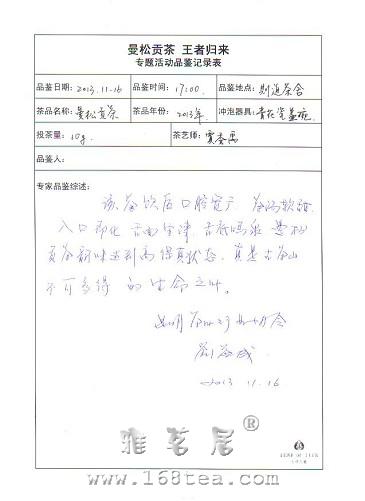 曼松贡茶 王者归来
专题活动品鉴记录表
品鉴日期: 2013.11.16 品鉴时间: 17:00 品鉴地点: 别逅茶舍
茶品名称: 曼松贡茶 茶品年份: 2013年 冲泡器具: 青花瓷盖碗
投茶量: 10g 茶艺师:
品鉴人:
专家品鉴综述:
该茶饮后口腔宽广 茶汤软甜
入口即化 舌面生津 舌底鸣泉 曼松
贡茶韵味达到高保真状态。真是古茶山
不可多得的生命之叶。
2013 11.16
雅茗居®
www.168tea.com